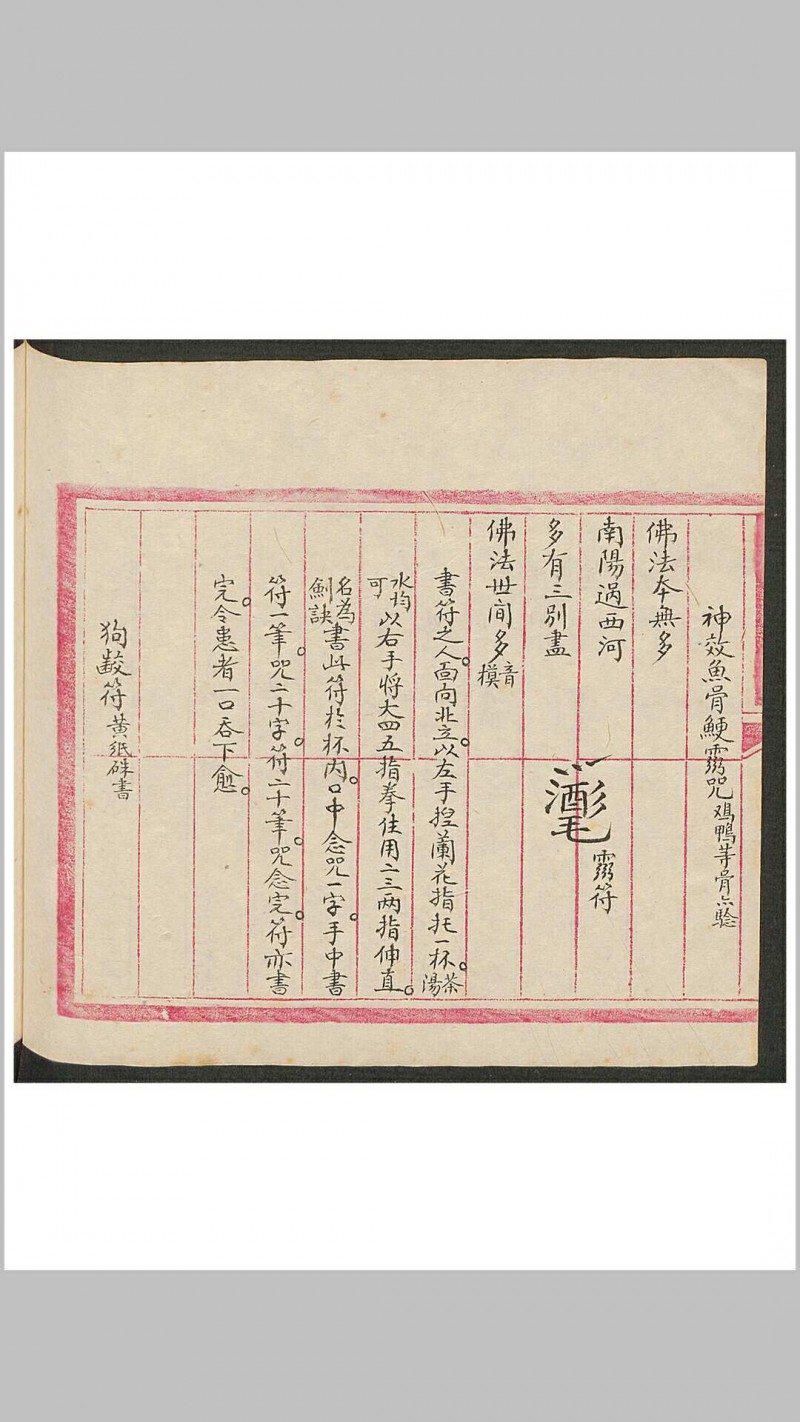 神效魚骨鯁靈咒鸡鴨等骨亦验
佛法本無多
南陽過西河
多有三別盡
靈符
佛法世间多音摸
書符之人。面向北立。以左手揑蘭花指托一杯。茶湯
水均可以右手将大四五指拳住用二三两指伸直。
名為劍訣書此符於杯内。口中念咒一字。手中書
符一筆。咒二十字。符二十筆。咒念完。符亦書
完。令患者一口吞下愈。
狗齩符黄纸硃書